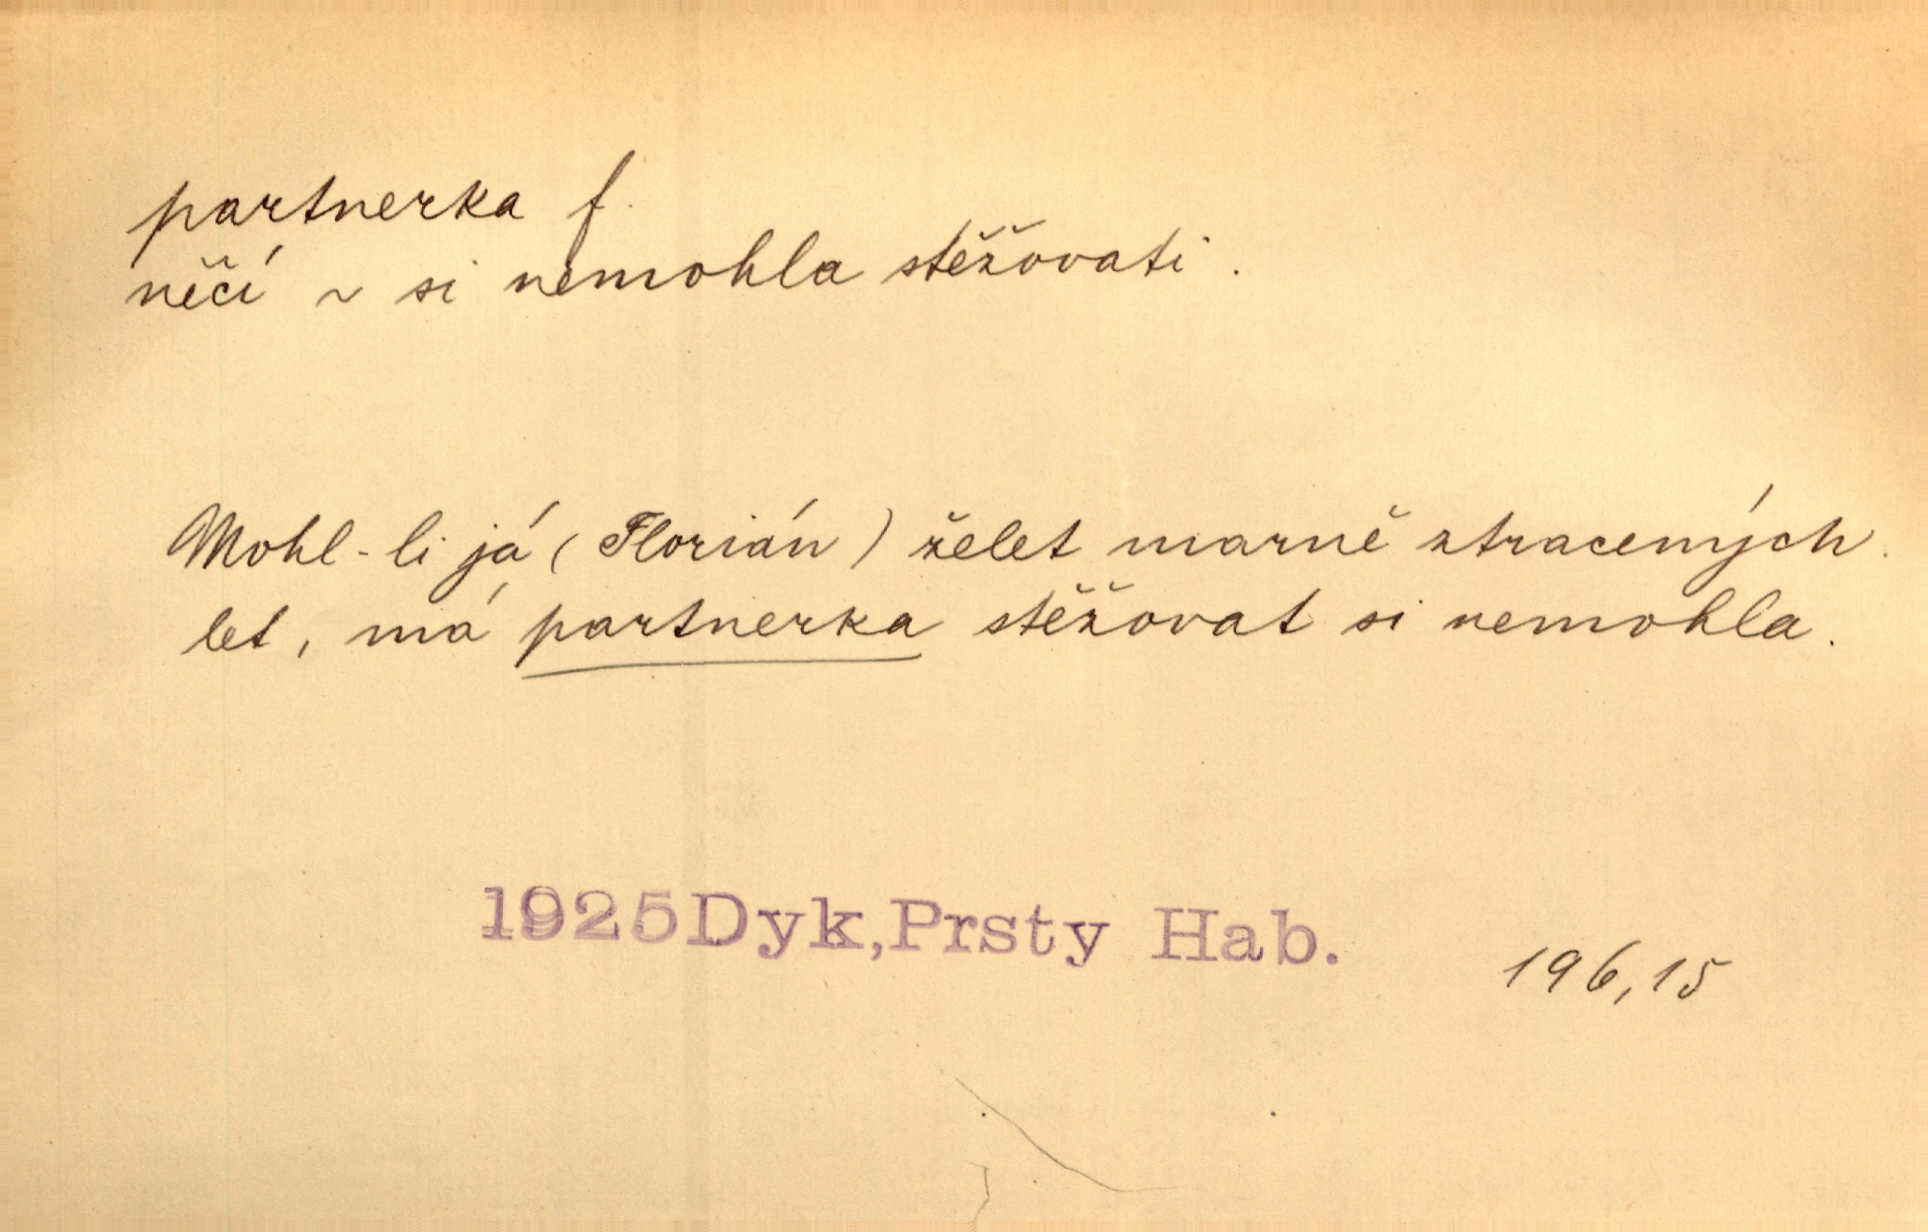 partnerka f.
něčí ~ si nemohla stěžovati.
Mohl-li já (Florián) želet marně ztracených
let, má partnerka stěžovat si nemohla.
1925 Dyk, Prsty Hab.
196,15